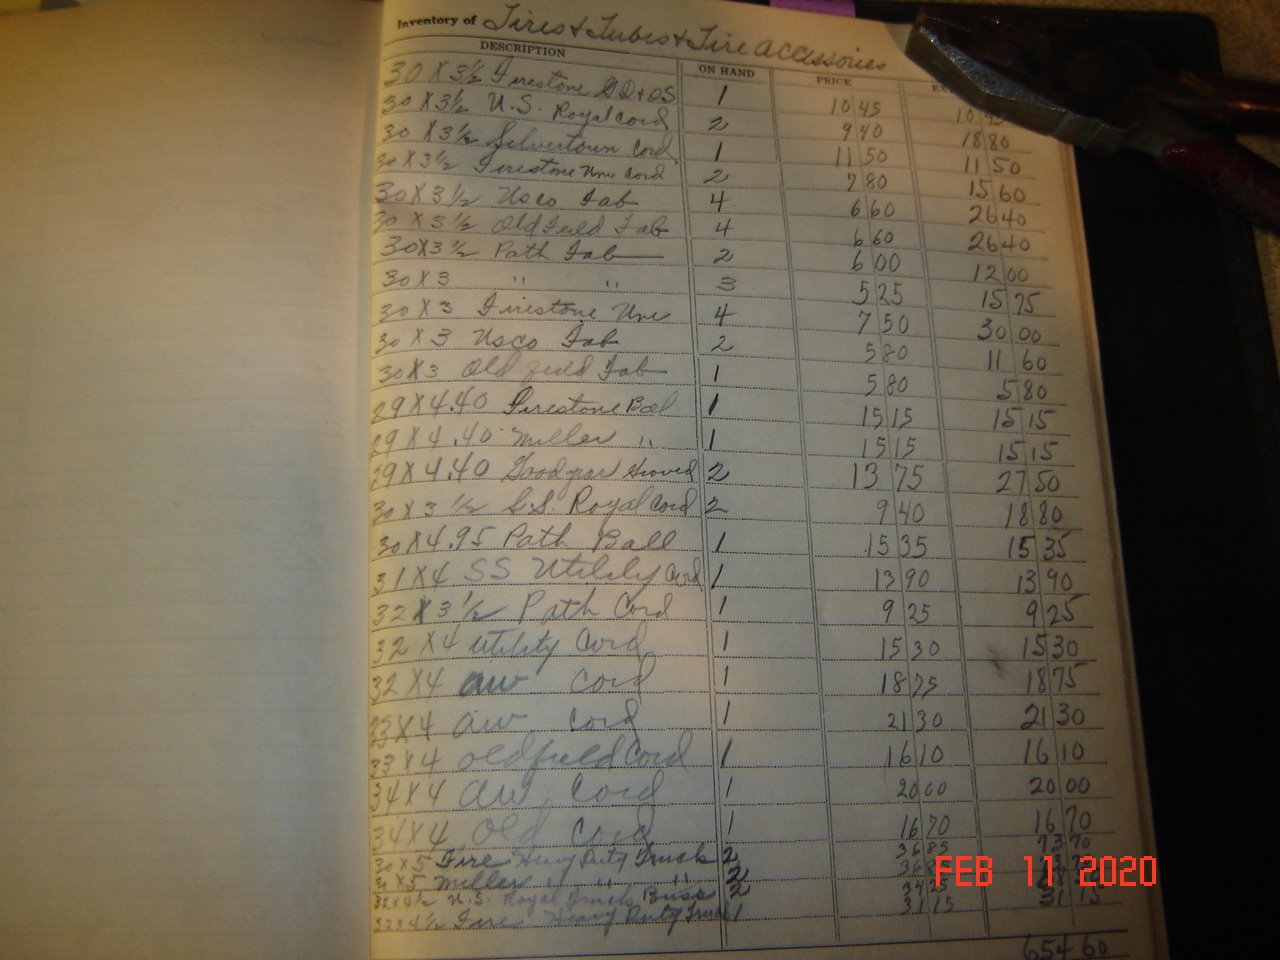 Inventory of Tires & Tubes & Tire accessories
DESCRIPTION ON HAND PRICE
30 X 3½ Firestone & OS 1 10 45 10 45
30 X 3½ U.S. Royal Cord 2 9 40 18 80
30 X 3½ Silvertown Cord 1 11 50 11 50
30 X 3½ Firestone Cord 2 7 80 15 60
30 X 3½ Usco Fab 4 6 60 26 40
30 X 3½ Oldfield Fab 4 6 60 26 40
30 X 3½ Path Fab 2 6 00 12 00
30 X 3 " " 3 5 25 15 75
30 X 3 Firestone 4 7 50 30 00
30 X 3 Usco Fab 2 5 80 11 60
30 X 3 Old field Fab 1 5 80 5 80
29 X 4.40 Firestone Bal 1 15 15 15 15
29 X 4.40 Miller " 1 15 15 15 15
29 X 4.40 Goodyear 2 13 75 27 50
30 X 3½ Royal Cord 2 9 40 18 80
30 X 4.95 Path Ball 1 15 35 15 35
31 X 4 SS Utility Cord 1 13 90 13 90
32 X 3½ Path Cord 1 9 25 9 25
32 X 4 Utility Cord 1 15 30 15 30
32 X 4 aw Cord 1 18 75 18 75
33 X 4 aw Cord 1 21 30 21 30
33 X 4 oldfield Cord 1 16 10 16 10
34 X 4 aw Cord 1 20 00 20 00
34 X 4 Old Cord 1 16 70 16 70
30 X 5 Fire Heavy Duty Truck 2 36 85 73 70
30 X 5 Miller " " " 2
32 X 4½ U.S. Royal Truck 2 34 25
32 X 4½ Fire Heavy Duty Truck 1 31 15 31 15
654 60
FEB 11 2020